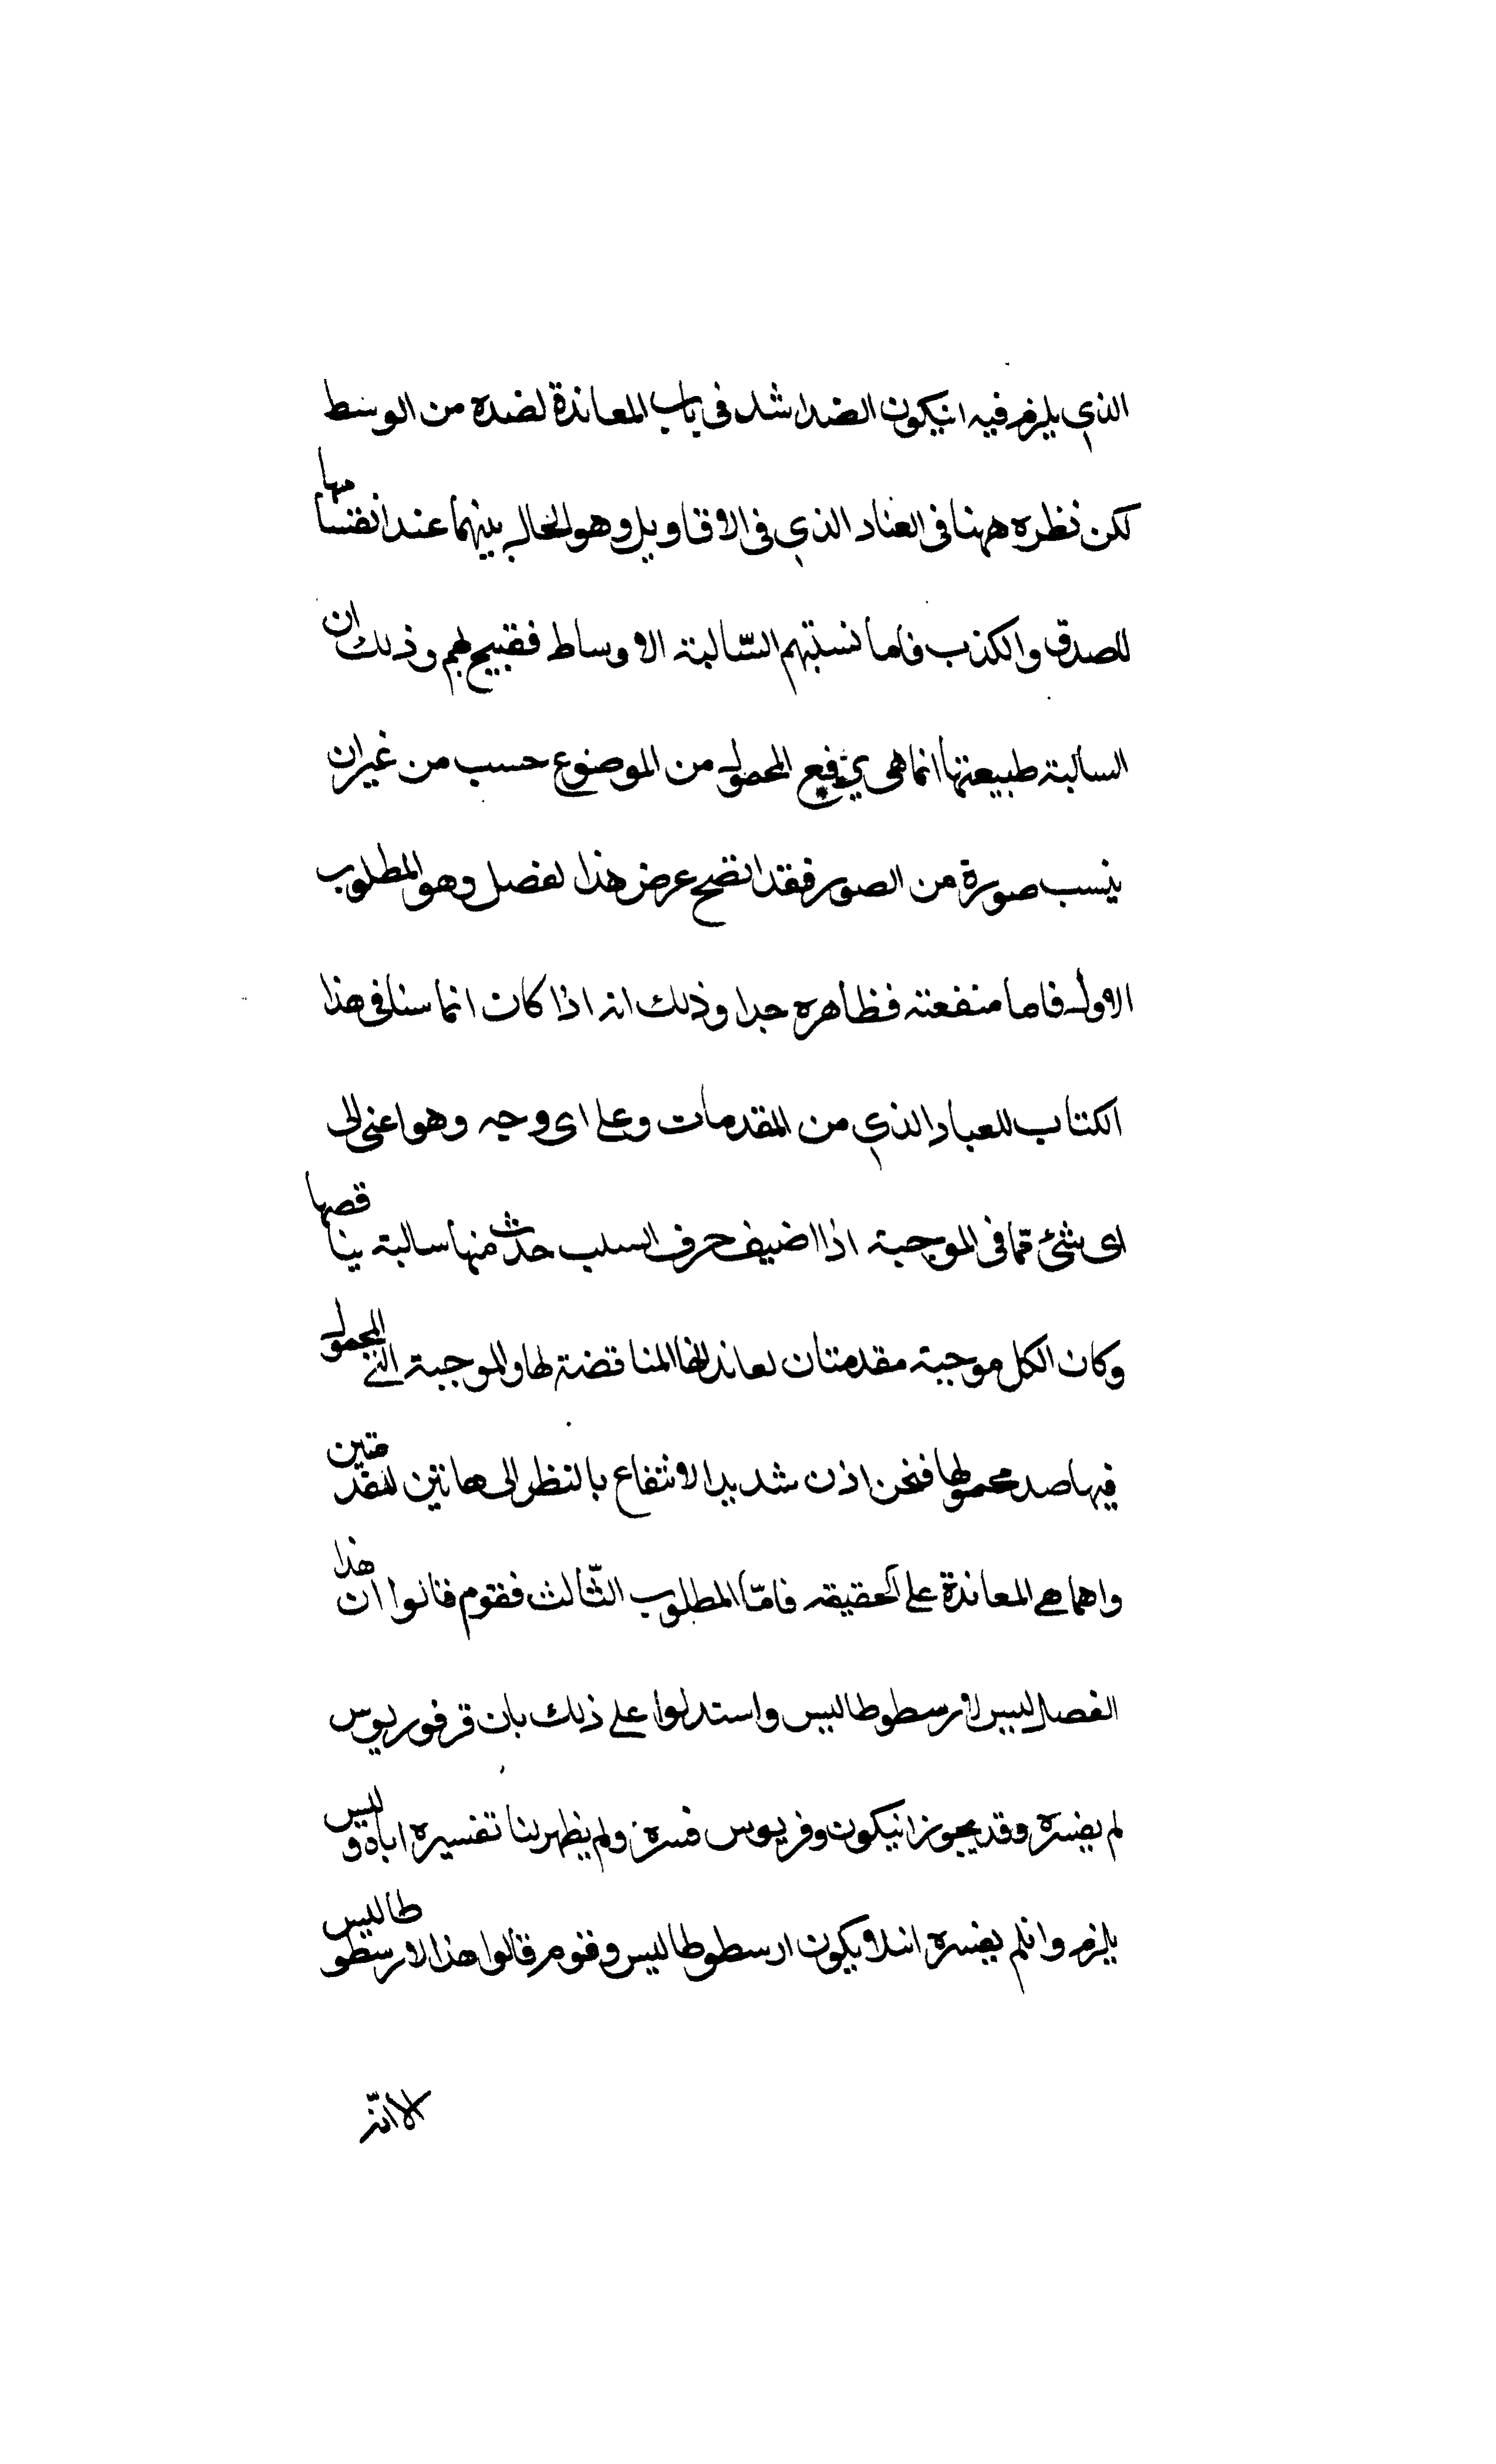 الذي يلزم فيه انيكون الضد اشد فى باب المعاندة لضده من الوسط
لكن نظره ههنا فى العناد الذي فى الاقاويل وهو الحال بينهما عند انقسامها
للصدق والكذب فاما نسبتهم السّالبة الاوساط فقبيح لهم وذلك ان
السالبة طبيعتها انما هى رفع المحمول من الموضوع حسب من غيران
ينسب صورة من الصور فقد اتضح عرض هذا لفصل وهو المطلوب
الاول فاما منفعته فظاهره جدا وذلك انه اذا كان انما سنا فى هذا
الكتاب للعباد الذي من المقدمات وعلى اى وجه وهو اعنى الى
اى شئ مما فى الموجبة اذا اضيف حرف السلب حدث منها سالبة يناقضها
وكان الكل موجبة مقدمتان تعاند انها المناقضة لها والموجبة التى المحمول
فيها صد محمولها فنحن اذن شديد الانتفاع بالنظر الى هاتين المقدمتين
وايهما هى المعاندة على الحقيقه فامّا المطلوب الثّالث فقوم قالوا ان هذا
الفصال ليس لارسطوطاليس واستدلوا على ذلك بان قرفوريوس
لم يفسره وقد يجوز انيكون وفريوس فسره ولم يظهر لنا تفسيره اياه وليس
يلزم وانلم يفسره انلا يكون ارسطوطاليس وقوم قالوا هذا لارسطوطاليس
الا انّه